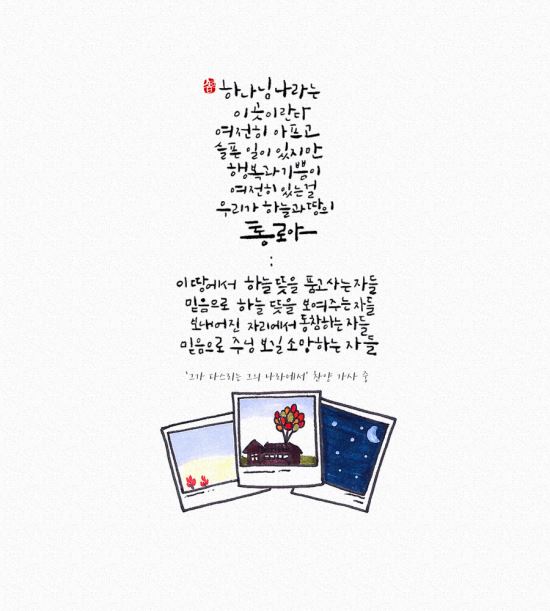 하나님 나라는
이곳이란다
여전히 아프고
슬픈 일이 있지만
행복과 기쁨이
여전히 있는걸
우리가 하늘과 땅의
통로야
:
이 땅에서 하늘 뜻을 품고 사는 자들
믿음으로 하늘 뜻을 보여주는 자들
보내어진 자리에서 동참하는 자들
믿음으로 주님 보실 소망하는 자들
'그가 다스리는 그의 나라에서' 찬양 가사 중